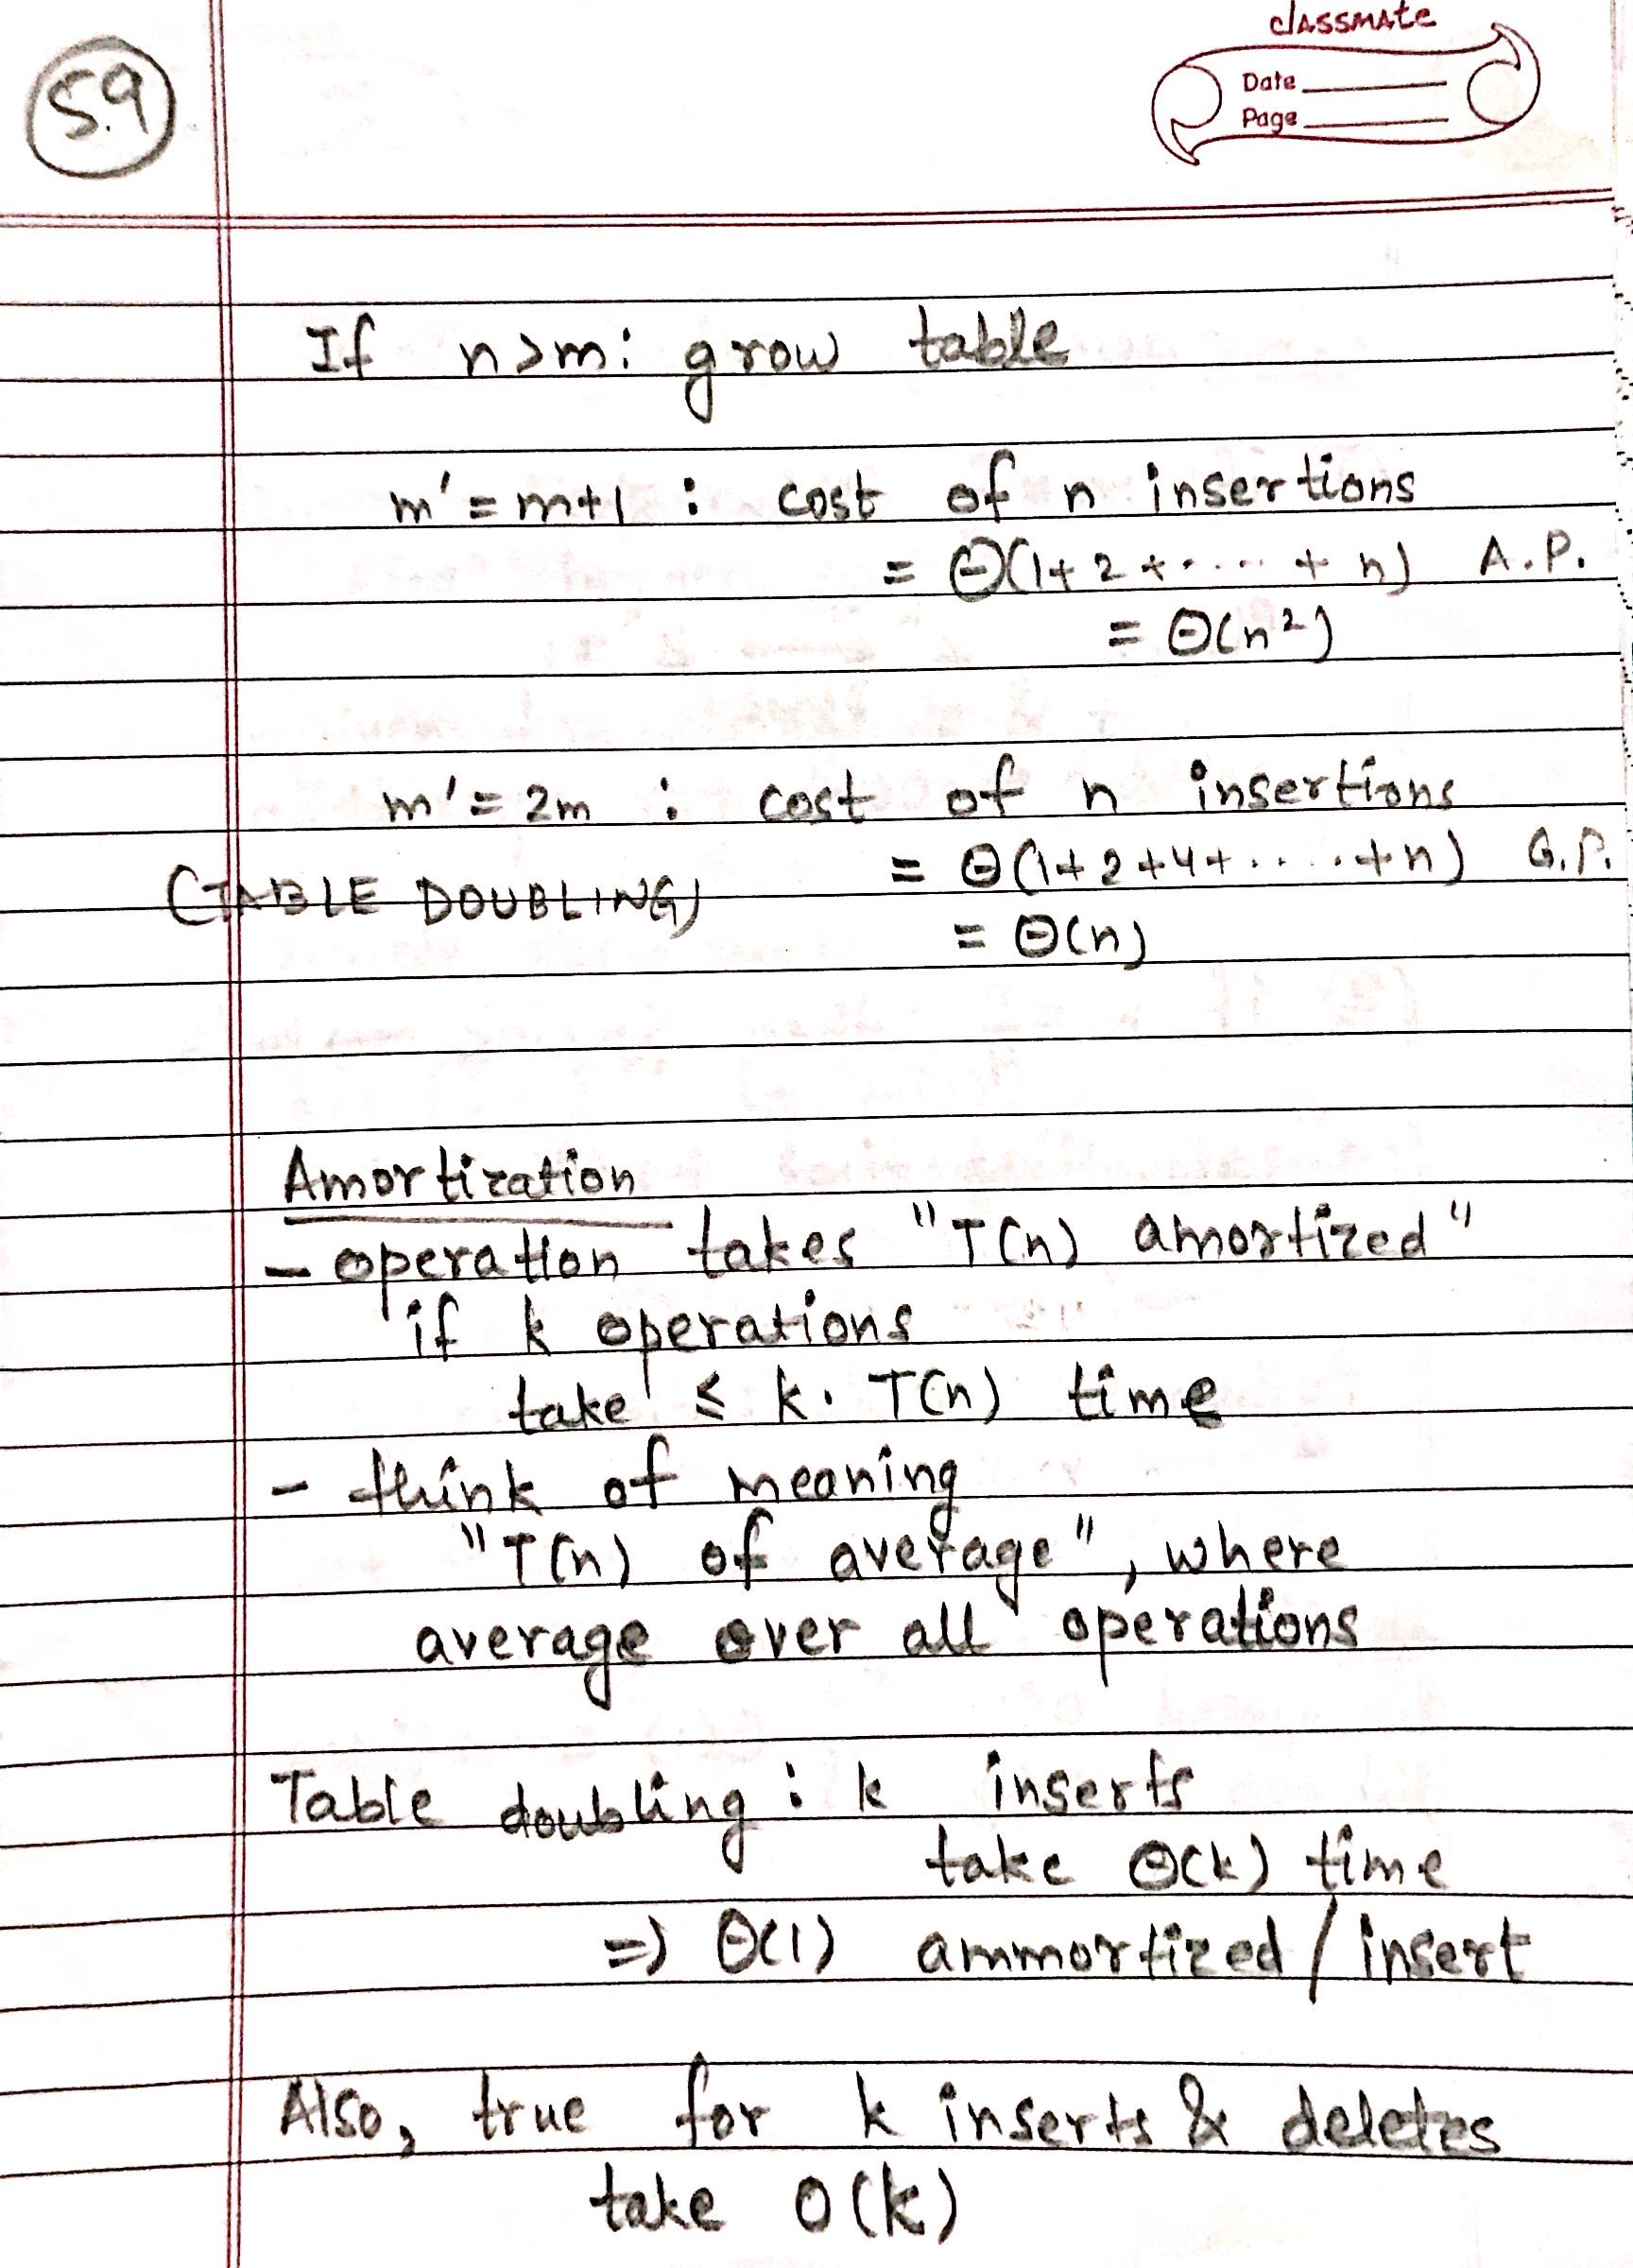 5.9
classmate
Date
Page
If n>m: grow table
m' = m+1 : cost of n insertions
= Θ(1+2+.....+n) A.P.
= Θ(n²)
m' = 2m : cost of n insertions
(TABLE DOUBLING) = Θ(1+2+4+.....+n) G.P.
= Θ(n)
Amortization
- operation takes "T(n) amortized"
if k operations
take ≤ k. T(n) time
- think of meaning
"T(n) of average", where
average over all operations
Table doubling : k inserts
take Θ(k) time
=) Θ(1) ammortized / insert
Also, true for k inserts & deletes
take O(k)